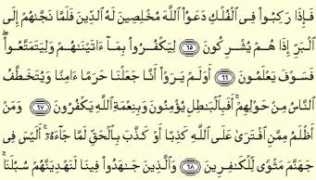 فَإِذَا رَكِبُوا۟ فِى ٱلْفُلْكِ دَعَوُا۟ ٱللَّهَ مُخْلِصِينَ لَهُ ٱلدِّينَ فَلَمَّا نَجَّىٰهُمْ إِلَى
ٱلْبَرِّ إِذَا هُمْ يُشْرِكُونَ ٦٥ لِيَكْفُرُوا۟ بِمَآ ءَاتَيْنَٰهُمْ وَلِيَتَمَتَّعُوا۟
فَسَوْفَ يَعْلَمُونَ ٦٦ أَوَلَمْ يَرَوْا۟ أَنَّا جَعَلْنَا حَرَمًا ءَامِنًا وَيُتَخَطَّفُ
ٱلنَّاسُ مِنْ حَوْلِهِمْ أَفَبِٱلْبَٰطِلِ يُؤْمِنُونَ وَبِنِعْمَةِ ٱللَّهِ يَكْفُرُونَ ٦٧ وَمَنْ
أَظْلَمُ مِمَّنِ ٱفْتَرَىٰ عَلَى ٱللَّهِ كَذِبًا أَوْ كَذَّبَ بِٱلْحَقِّ لَمَّا جَآءَهُۥٓ أَلَيْسَ فِى
جَهَنَّمَ مَثْوًى لِّلْكَٰفِرِينَ ٦٨ وَٱلَّذِينَ جَٰهَدُوا۟ فِينَا لَنَهْدِيَنَّهُمْ سُبُلَنَا